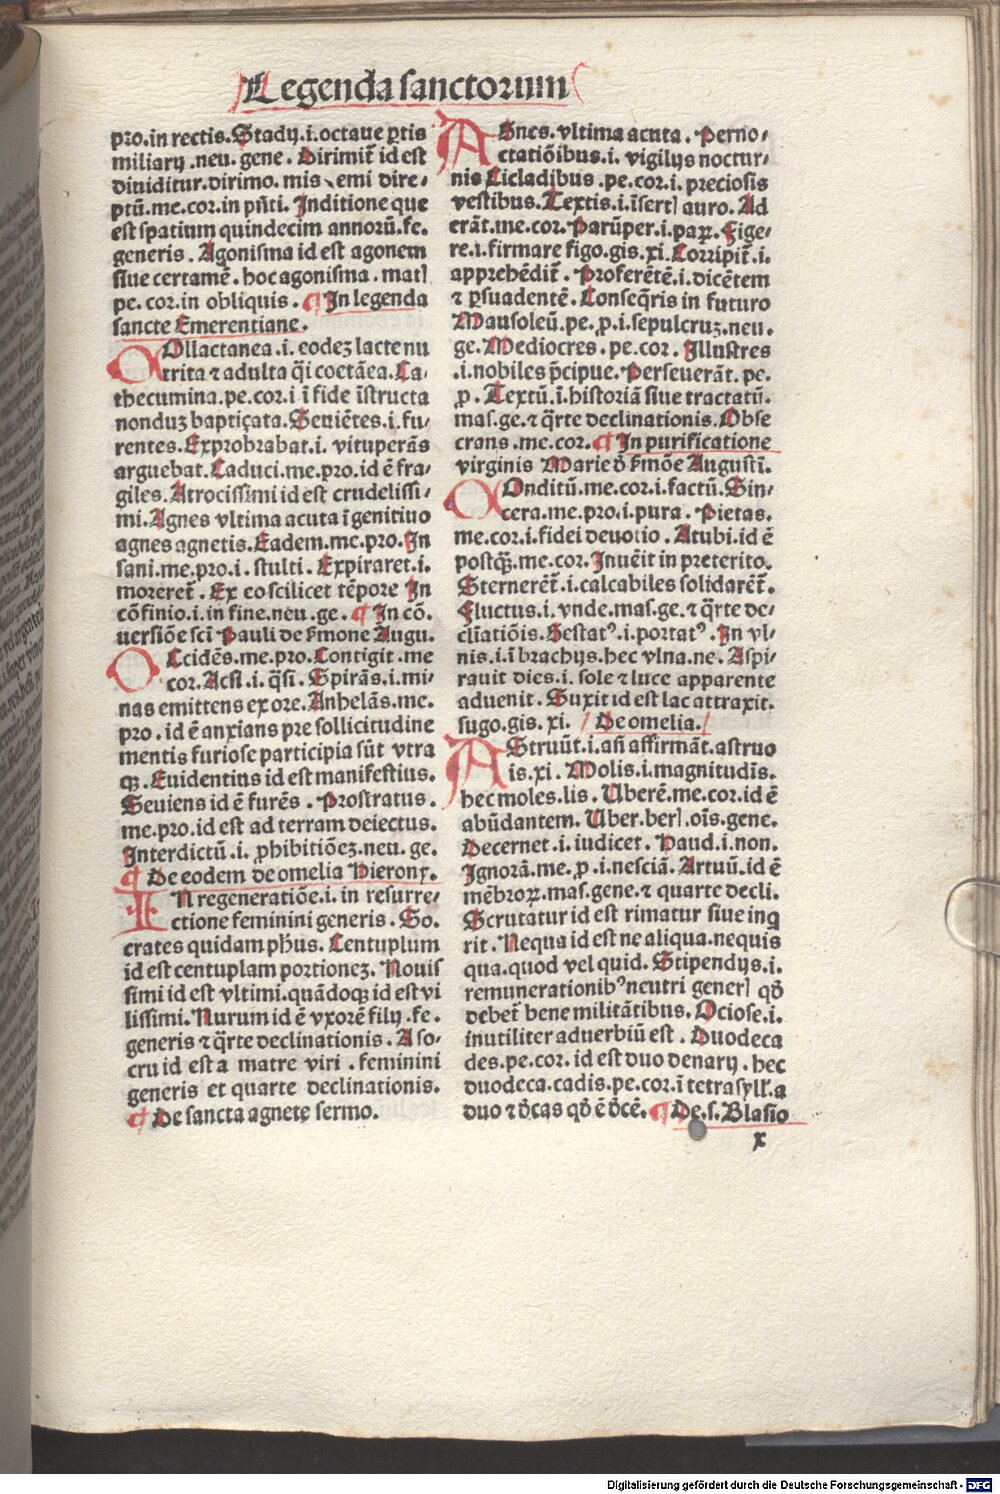 Legenda sanctorum
pro.in rectis.Stadij.i.octaue ꝑtis
miliarij.neu.gene.Dirimit̃ id est
diuiditur.dirimo.mis.emi dire-
ptũ.me.cor.in pñti.Inditione que
est spatium quindecim annorũ.fe.
generis.Agonisma id est agonem
siue certamẽ.hoc agonisma.matꝭ
pe.cor.in obliquis.¶In legenda
sancte Emerentiane.
COllactanea.i.eodeʒ lacte nu
trita ⁊ adulta q̃i coetãea.Ca-
thecumina.pe.cor.i ĩ fide ĩstructa
nonduʒ baptiçata.Seuiẽtes.i.fu-
rentes.Exprobrabat.i. vituperãs
arguebat.Caduci.me.pro.id ẽ fra-
giles.Atrocissimi id est crudelissi-
mi.Agnes vltima acuta ĩ genitiuo
agnes agnetis.Eadem.me.pro.In
sani.me.pro.i.stulti.Expiraret.i.
moreret̃.Ex eo scilicet tẽpore In
cõfinio.i.in fine.neu.ge.¶In cõ.
uersiõe sci Pauli de ẜmone Augu.
OCcidẽs.me.pro.Contigit.me
cor.Acsi.i.q̃si.Spirãs.i.mi-
nas emittens ex ore.Anhelãs.me.
pro.id ẽ anxians pre sollicitudine
mentis furiose participia sũt vtra
qꝫ.Euidentius id est manifestius.
Seuiens id ẽ furẽs.Prostratus.
me.pro.id est ad terram deiectus.
Interdictũ.i.ꝓhibitiõeʒ.neu.ge.
¶De eodem de omelia Hierony.
IN regeneratiõe.i.in resurre-
ctione feminini generis.So-
crates quidam pħus.Centuplum
id est centuplam portioneʒ.Nouis
simi id est vltimi.quãdoqꝫ id est vi
lissimi.Nurum id ẽ vxorẽ filij.fe.
generis ⁊ q̃rte declinationis.A so-
cru id est a matre viri.feminini
generis et quarte declinationis.
¶De sancta agnete sermo.
AGnes.vltima acuta.Perno-
ctatiõibus.i.vigilijs noctur-
nis Cicladibus.pe.cor.i.preciosis
vestibus.Textis.i.ĩsertꝭ auro.Ad
erãt.me.cor.Parũper.i.paꝝ.Fige-
re.i.firmare figo.gis.xi.Corripit̃.i.
apprehẽdit̃.Proferẽtẽ.i.dicẽtem
⁊ ꝑsuadentẽ.Conseq̃ris in futuro
Mausoleũ.pe.ꝓ.i.sepulcruʒ.neu.
ge.Mediocres.pe.cor.Illustres
.i.nobiles p̃cipue.Perseuerãt.pe.
ꝓ.Textũ.i.historiã siue tractatũ.
mas.ge.⁊ q̃rte declinationis.Obse
crans.me.cor.¶In purificatione
virginis Marie ð ẜmõe Augusti.
COnditũ.me.cor.i.factũ.Sin-
cera.me.pro.i.pura.Pietas.
me.cor.i.fidei deuotio.Atubi.id ẽ
postqꝫ.me.cor.Inuẽit in preterito.
Sternerẽt̃.i.calcabiles solidarẽt̃.
Fluctus.i.vnde.mas.ge.⁊ q̃rte de-
cliatiõis.Gestatꝰ.i.portatꝰ.In vl-
nis.i.ĩ brachijs.hec vlna.ne.Aspi-
rauit dies.i.sole ⁊ luce apparente
aduenit.Suxit id est lac attraxit.
sugo.gis.xi. De omelia.
AStruũt.i.añ affirmãt.astruo
is.xi.Molis.i.magnitudĩs.
hec moles.lis.Uberẽ.me.cor.id ẽ
abũdantem.Uber.berꝭ.oĩs.gene.
Decernet.i.iudicet.Haud.i.non.
Ignorã.me.ꝓ.i.nesciã.Artuũ.id ẽ
mẽbroꝝ.mas.gene.⁊ quarte decli.
Scrutatur id est rimatur siue inq
rit.Nequa id est ne aliqua.nequis
qua.quod vel quid.Stipendijs.i.
remunerationibꝰ neutri generꝭ qð
debet̃ bene militãtibus.Ociose.i.
inutiliter aduerbiũ est.Duodeca
des.pe.cor.id est duo denarij.hec
duodeca.cadis.pe.cor.ĩ tetrasyll.a
duo ⁊ ðcas qð ẽ ðcẽ.¶De.s.Blasio
x
Digitalisierung gefördert durch die Deutsche Forschungsgemeinschaft - DFG